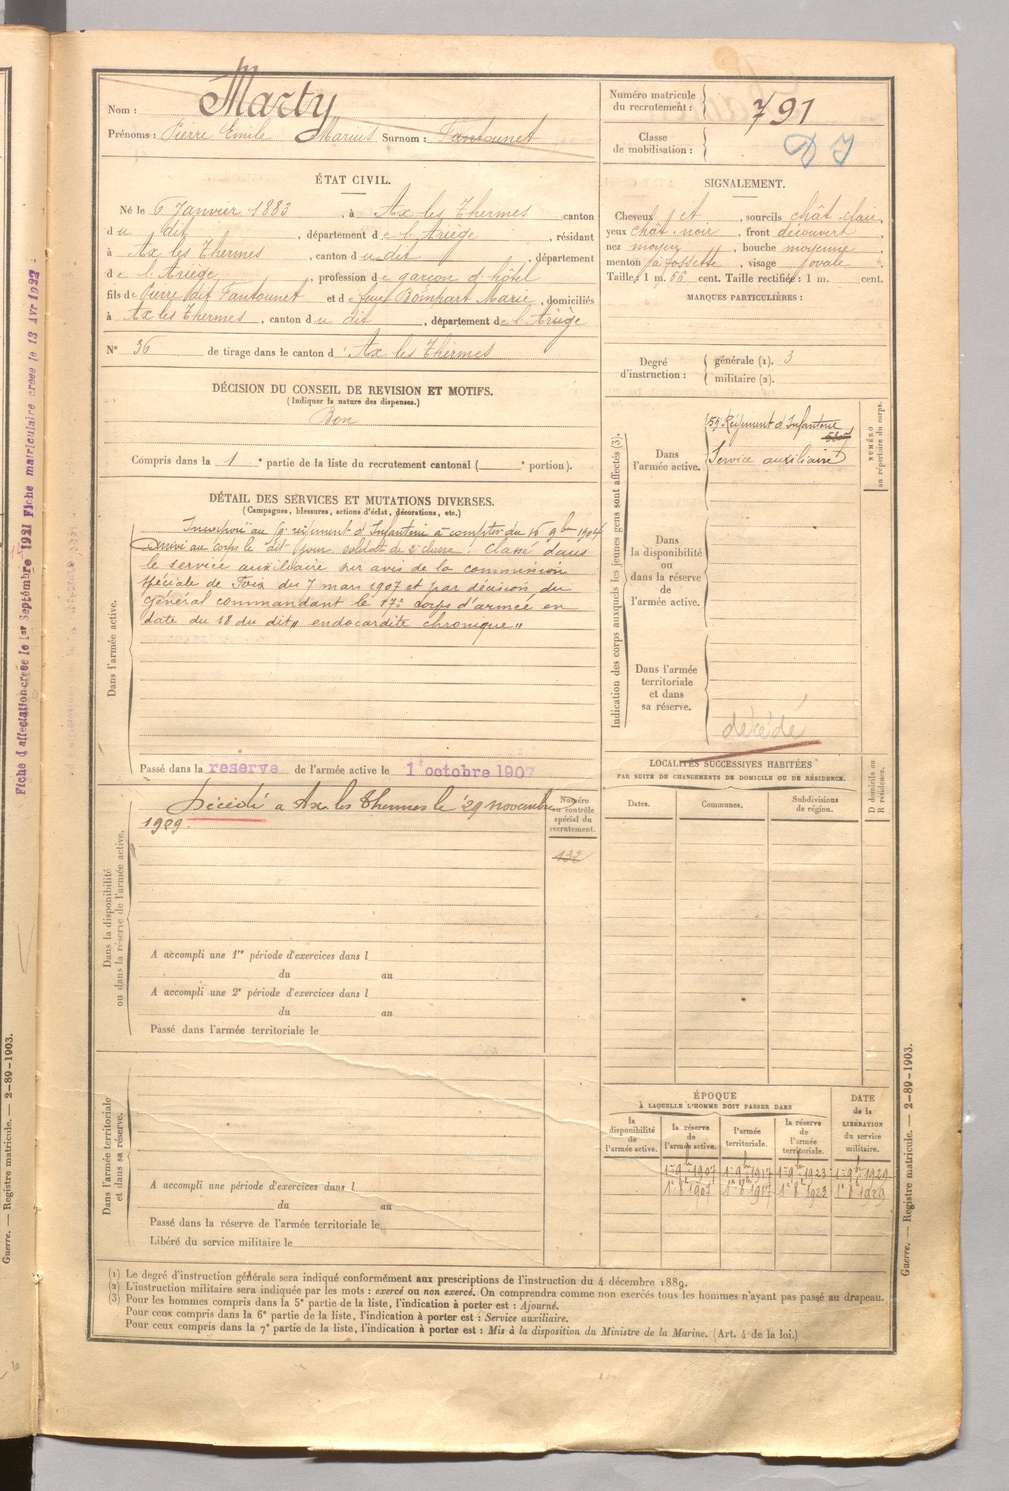 Nom : Marty
Prénoms : Pierre Emile Marius Surnom : Fantounet
ÉTAT CIVIL.
Né le 6 Janvier 1883, à Ax les Thermes canton
du dit, département de l'Ariège, résidant
à Ax les Thermes, canton du dit, département
de l'Ariège, profession de garçon d'hôtel
fils de Pierre dit Fantounet et de feue Marie, domiciliés
à Ax les Thermes, canton du dit, département de l'Ariège
N° 36 de tirage dans le canton d'Ax les Thermes
DÉCISION DU CONSEIL DE REVISION ET MOTIFS.
(Indiquer la nature des dispenses.)
Bon
Compris dans la 1e partie de la liste du recrutement cantonal ( e portion).
DÉTAIL DES SERVICES ET MUTATIONS DIVERSES.
(Campagnes, blessures, actions d'éclat, décorations, etc.)
Incorporé au régiment d'Infanterie à compter du 16 9bre 1904
Arrivé au corps le dit jour soldat de 2e classe. Classé dans
le service auxiliaire sur avis de la commission
spéciale de Foix du 7 mars 1907 et par décision du
Général commandant le 17e corps d'armée en
date du 18 du dit, endocardite chronique"
Dans l'armée active.
Passé dans la reserve de l'armée active le 1 octobre 1907
Décédé à Ax les Thermes le 29 novembre
1909.
Numéro
au contrôle
spécial du
recrutement.
132
Dans la disponibilité
ou dans la réserve de l'armée active.
A accompli une 1re période d'exercices dans l
du au
A accompli une 2e période d'exercices dans l
du au
Passé dans l'armée territoriale le
Dans l'armée territoriale
et dans sa réserve.
A accompli une période d'exercices dans l
du au
Passé dans la réserve de l'armée territoriale le
Libéré du service militaire le
Numéro matricule
du recrutement : 791
Classe
de mobilisation :
SIGNALEMENT.
Cheveux et, sourcils chât. clair,
yeux chât. noir, front découvert
nez moyen, bouche moyenne
menton à fossette, visage ovale
Taille : 1 m. 66 cent. Taille rectifiée : 1 m. cent.
MARQUES PARTICULIÈRES :
Degré
d'instruction :
générale (1). 3
militaire (2).
Indication des corps auxquels les jeunes gens sont affectés (3).
NUMÉRO
au répertoire du corps.
Dans
l'armée active.
59e Régiment d'Infanterie
Service auxiliaire
Dans
la disponibilité
ou
dans la réserve
de
l'armée active.
Dans l'armée
territoriale
et dans
sa réserve.
décédé
LOCALITÉS SUCCESSIVES HABITÉES
PAR SUITE DE CHANGEMENTS DE DOMICILE OU DE RÉSIDENCE.
D domicile ou
R résidence.
Dates. Communes. Subdivisions
de région.
ÉPOQUE
À LAQUELLE L'HOMME DOIT PASSER DANS
DATE
de la
LIBÉRATION
du service
militaire.
la
disponibilité
de
l'armée active.
la réserve
de
l'armée active.
l'armée
territoriale.
la réserve
de
l'armée
territoriale.
1er 9bre 1907 1er 9bre 1917 1er 9bre 1923 1er 9bre 1929
1er 8bre 1907 1er 8bre 1917 1er 8bre 1923 1er 8bre 1929
(1) Le degré d'instruction générale sera indiqué conformément aux prescriptions de l'instruction du 4 décembre 1889.
(2) L'instruction militaire sera indiquée par les mots : exercé ou non exercé. On comprendra comme non exercés tous les hommes n'ayant pas passé au drapeau.
(3) Pour les hommes compris dans la 5e partie de la liste, l'indication à porter est : Ajourné.
Pour ceux compris dans la 6e partie de la liste, l'indication à porter est : Service auxiliaire.
Pour ceux compris dans la 7e partie de la liste, l'indication à porter est : Mis à la disposition du Ministre de la Marine. (Art. 4 de la loi.)
Fiche d'affectation créée le 1er Septembre 1921 Fiche matriculaire créée le 13 Avr 1922 :
Guerre. — Registre matricule. — 2-89-1903.
Guerre. — Registre matricule. — 2-89-1903.